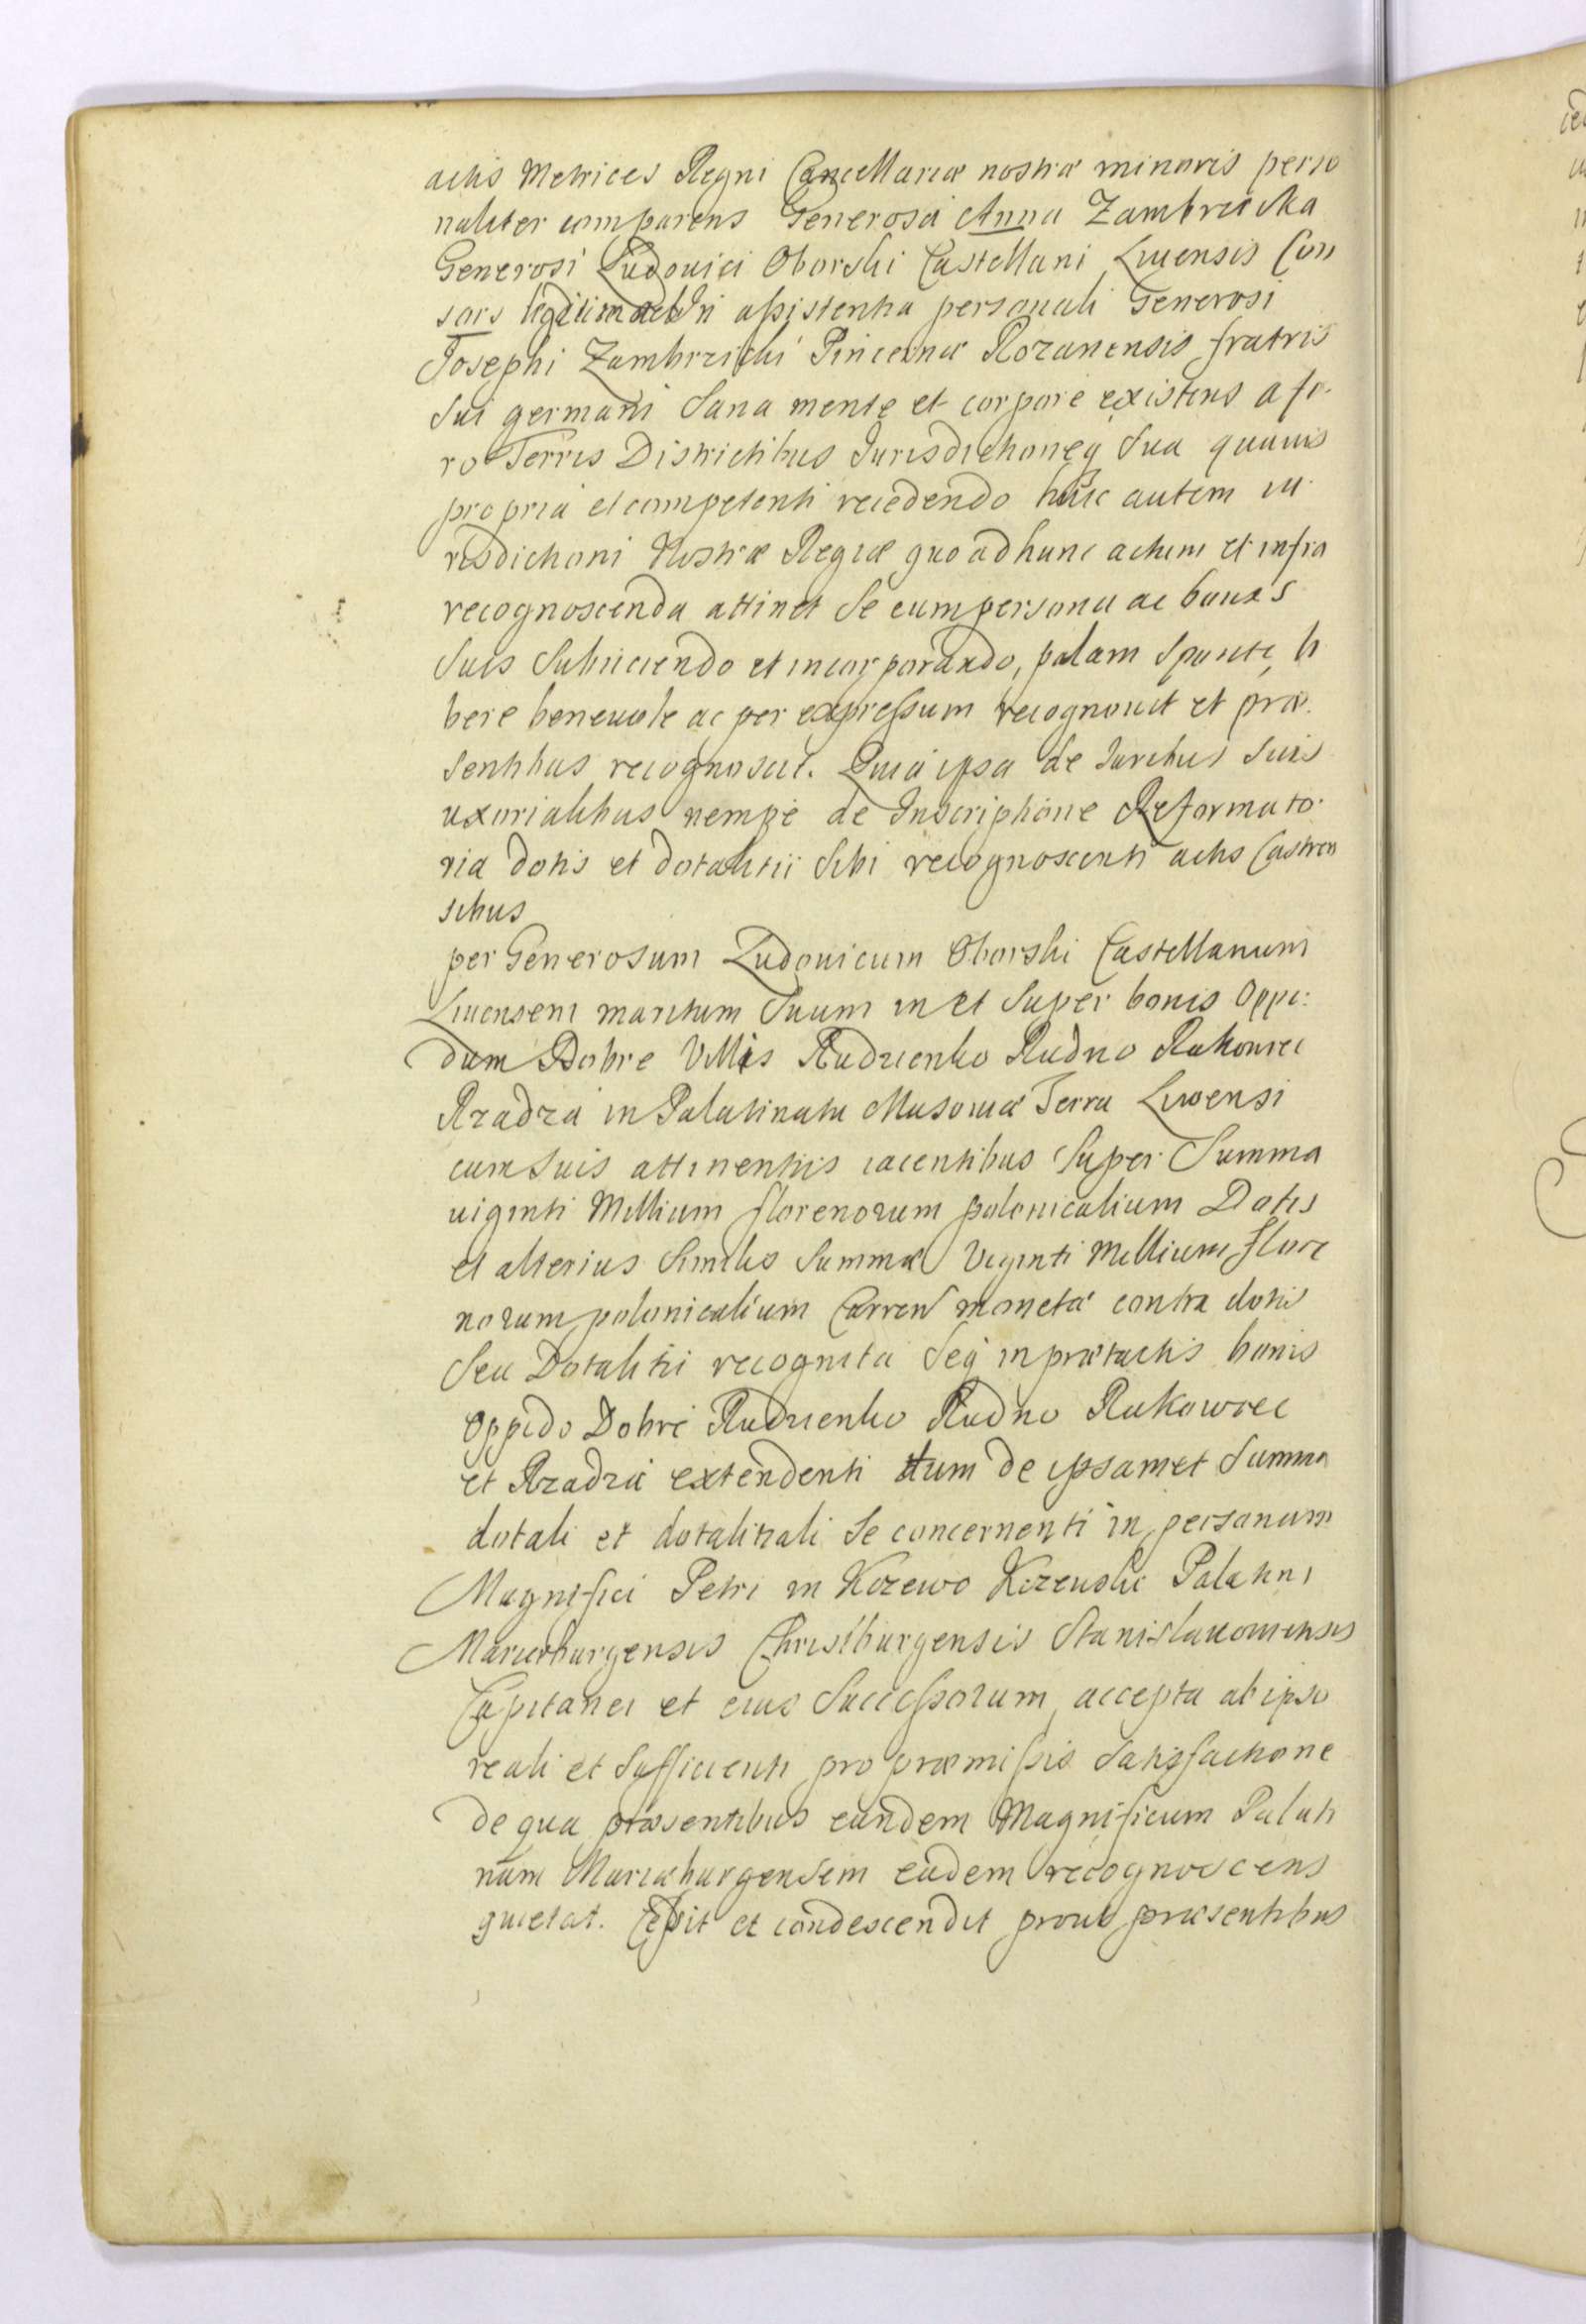 actis Metrices Regni Cancellariæ nostræ minoris perso
naliter comparens Generosa Anna Zambrzicka
Generosi Ludovici Oborski Castellani Livensis Con
sors legitima in assistentia personali Generosi
Josephi Zambrzicki Pincernæ Rozanensis fratris
sui germani sana mente et corpore existens a fo-
ro Terris Districtibus Jurisdictioneq sua quavis
propria et competenti recedendo huic autem iu-
risdictioni Nostræ Regiæ quo ad hunc actum et infra
recognoscenda attinet se cum persona ac bonis
suis subiiciendo et incorporando, palam sponte, li
bere benevole ac per expressum recognovit et præ-
sentibus recognoscit. Quia ipsa de Juribus suis
uxorialibus nempe de Inscriptione Reformato-
ria dotis et dotalitii sibi recognoscenti actis Castren
sibus
per Generosum Ludovicum Oborski Castellanum
Livensem maritum suum in et super bonis Oppi:
dum Dobre Villis Rudzienko Rudno Rakowiec
Rzadza in Palatinatu Masoviæ Terra Liwensi
cum suis attinentiis iacentibus super Summa
viginti Millium florenorum polonicalium Dotis
et alterius similis summæ Viginti Millium flore
norum polonicalium Curren monetæ contra dotis
seu Dotalitii recognita seq in prætactis bonis
Oppido Dobre Rudzienko Rudno Rakowiec
et Rzadza extendenti tum de ipsamet Summa
dotali et dotalitiali se concernenti in personam
Magnifici Petri in Kczewo Kczewski Palatini
Mariæburgensis Christburgensis Stanislavoviensis
Capitanei et eius Successorum, accepta ab ipso
reali et sufficienti pro præmissis satisfactione
de qua præsentibus eundem Magnificum Palati
num Mariæburgensem eadem recognoscens
quietat. Cessit et condescendit prout præsentibus